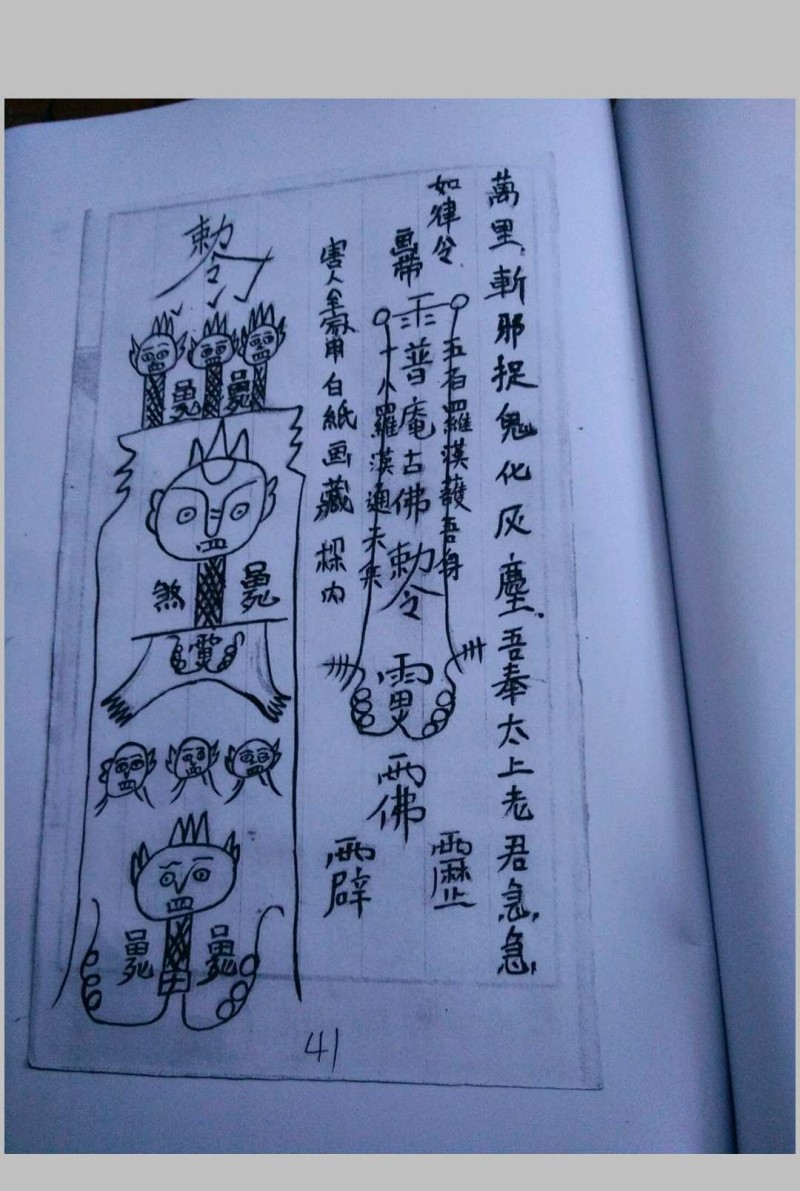 萬里斬邪捉鬼化灰塵吾奉太上老君急急
如律令
五百羅漢護吾身
普庵古佛勅令
十八羅漢通天
霹
靂
害人全家用白紙画藏樑内
勅令
煞
41